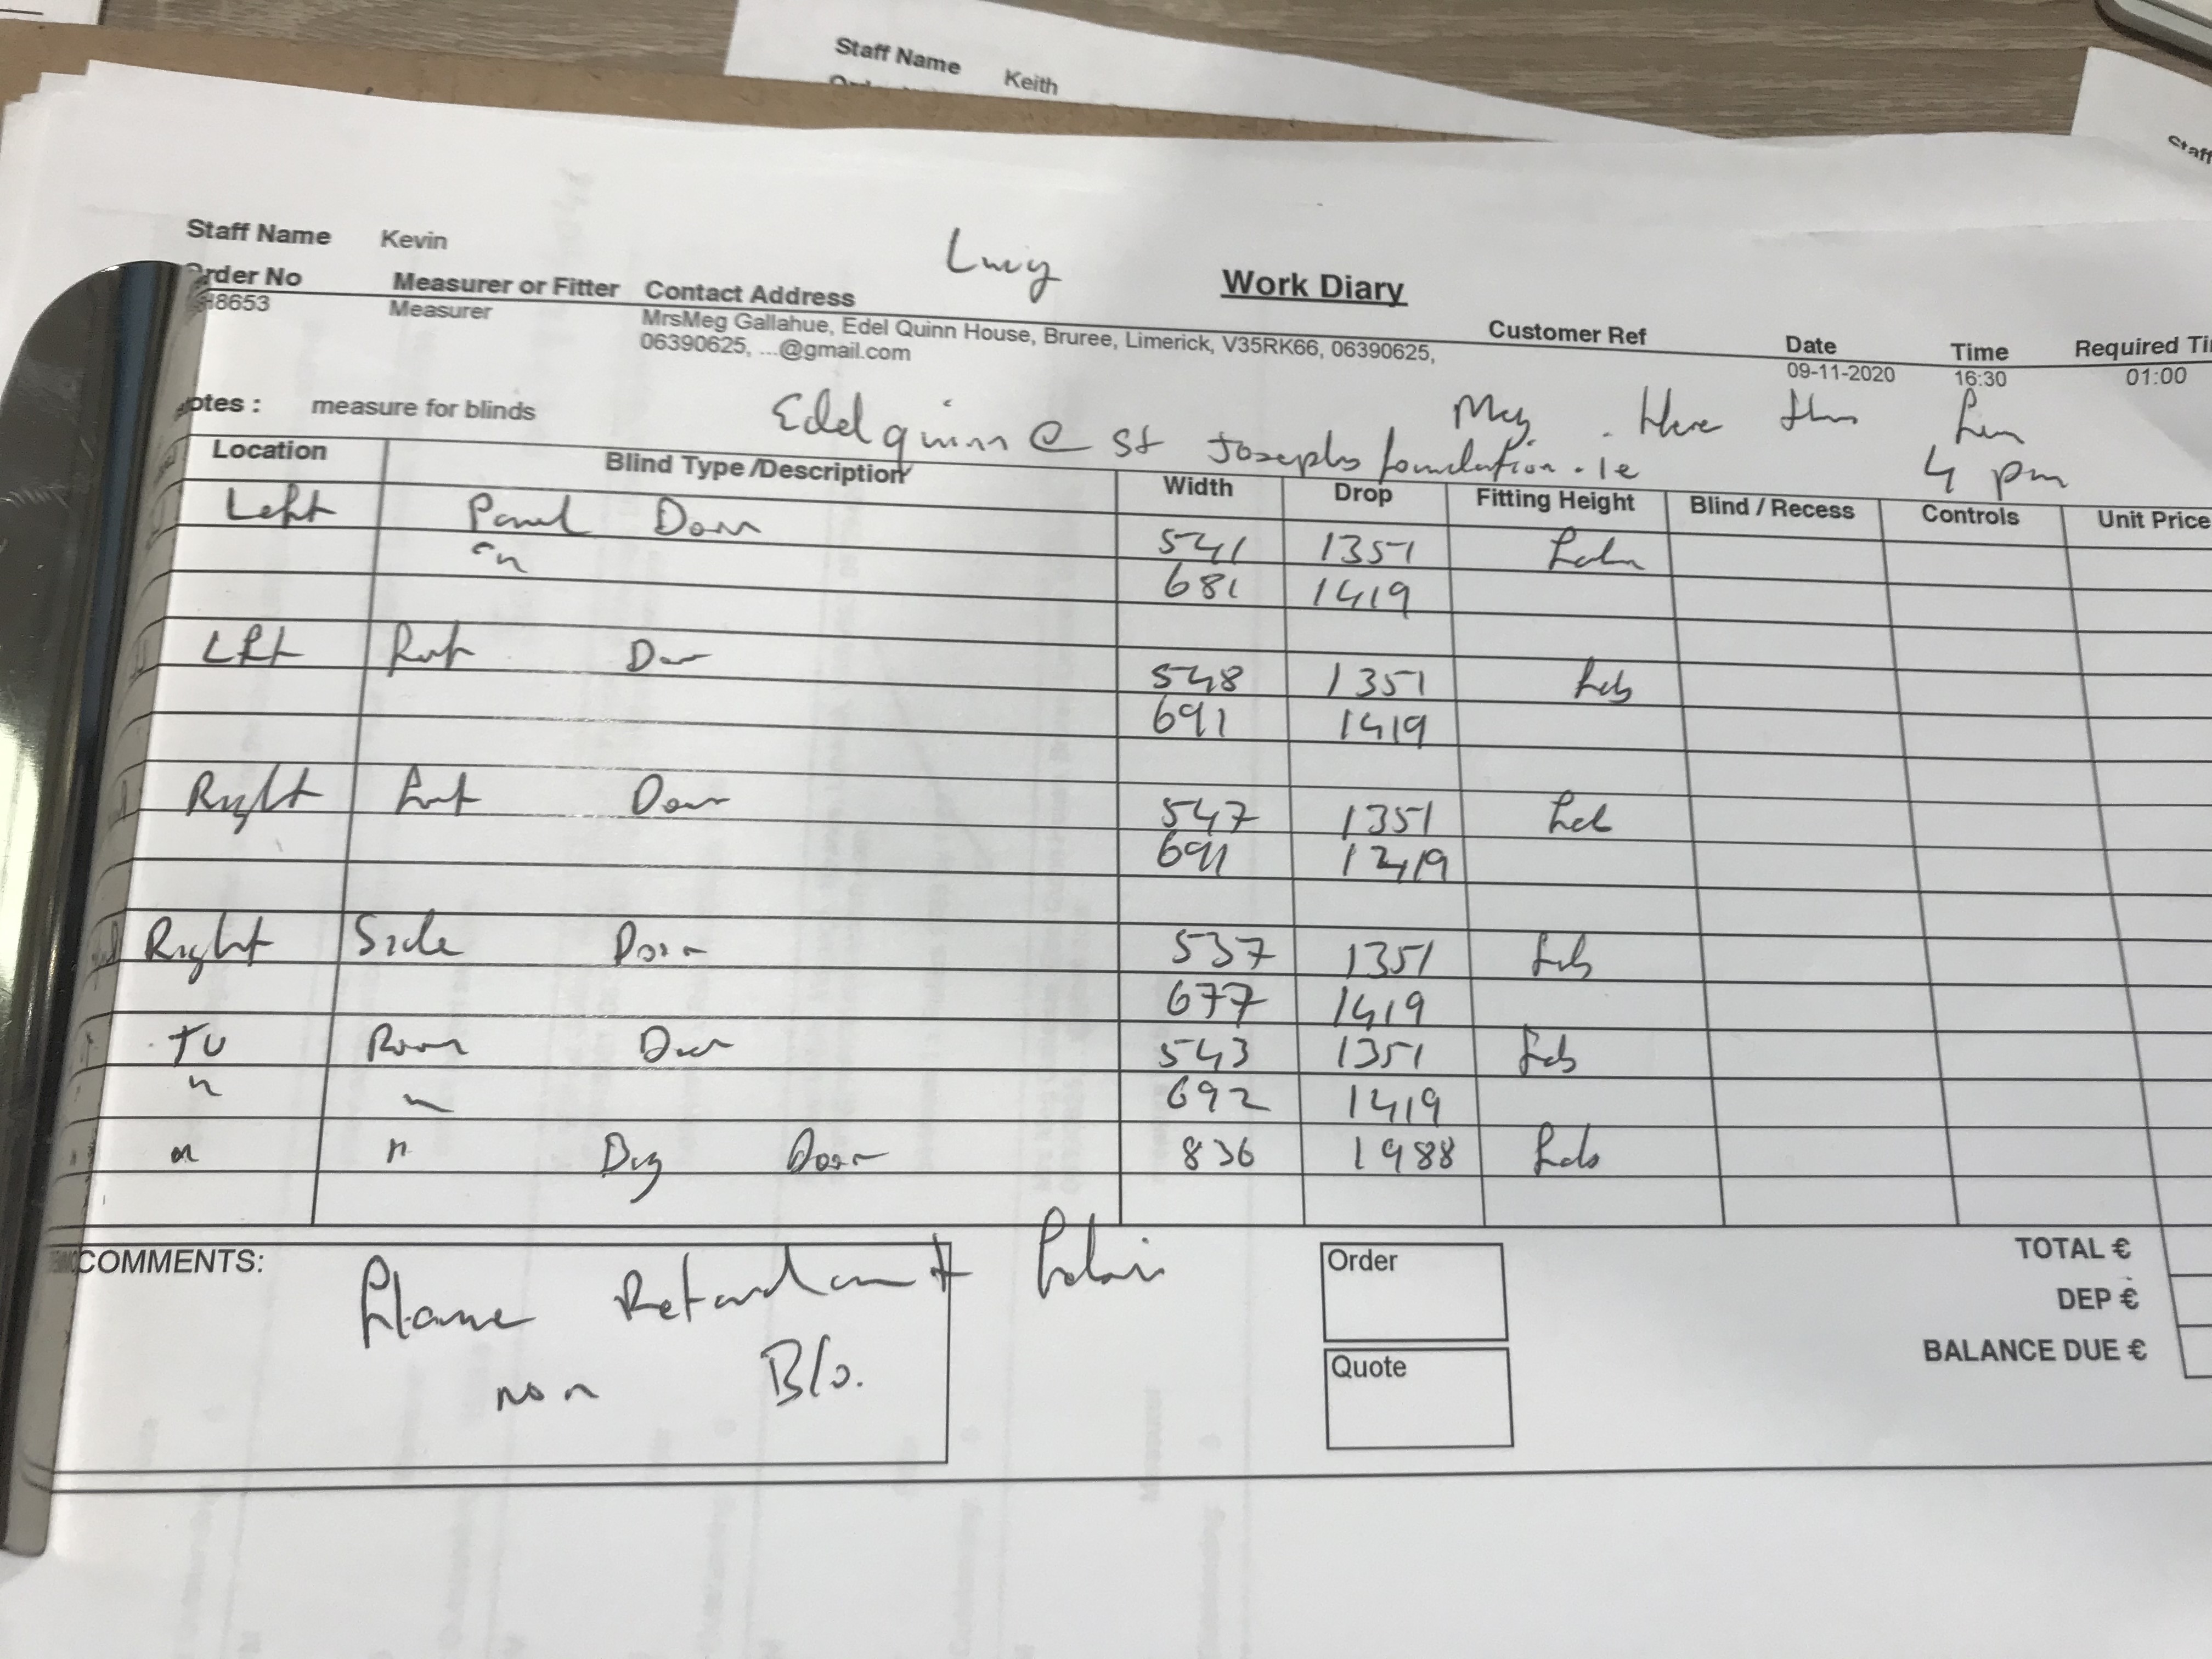 Staff Name Keith
Staff
Staff Name Kevin
Lucy
Work Diary
Order No Measurer or Fitter Contact Address Customer Ref Date Time Required Ti
H8653 Measurer MrsMeg Gallahue, Edel Quinn House, Bruree, Limerick, V35RK66, 06390625, 09-11-2020 16:30 01:00
06390625, ...@gmail.com
otes : measure for blinds
Meg
Edelquinn @ St Josephs foundation.ie 4 pm
Location Blind Type /Description Width Drop Fitting Height Blind / Recess Controls Unit Price
Left Panel Door 541 1351
" 681 1419
Left Door 548 1351
691 1419
Right Door 547 1351
691 1419
Right Side Door 537 1351
677 1419
TV Room Door 543 1351
" " 692 1419
" " Big Door 836 1988
COMMENTS: Flame Retardant Fabric
non B/o.
Order
Quote
TOTAL €
DEP €
BALANCE DUE €